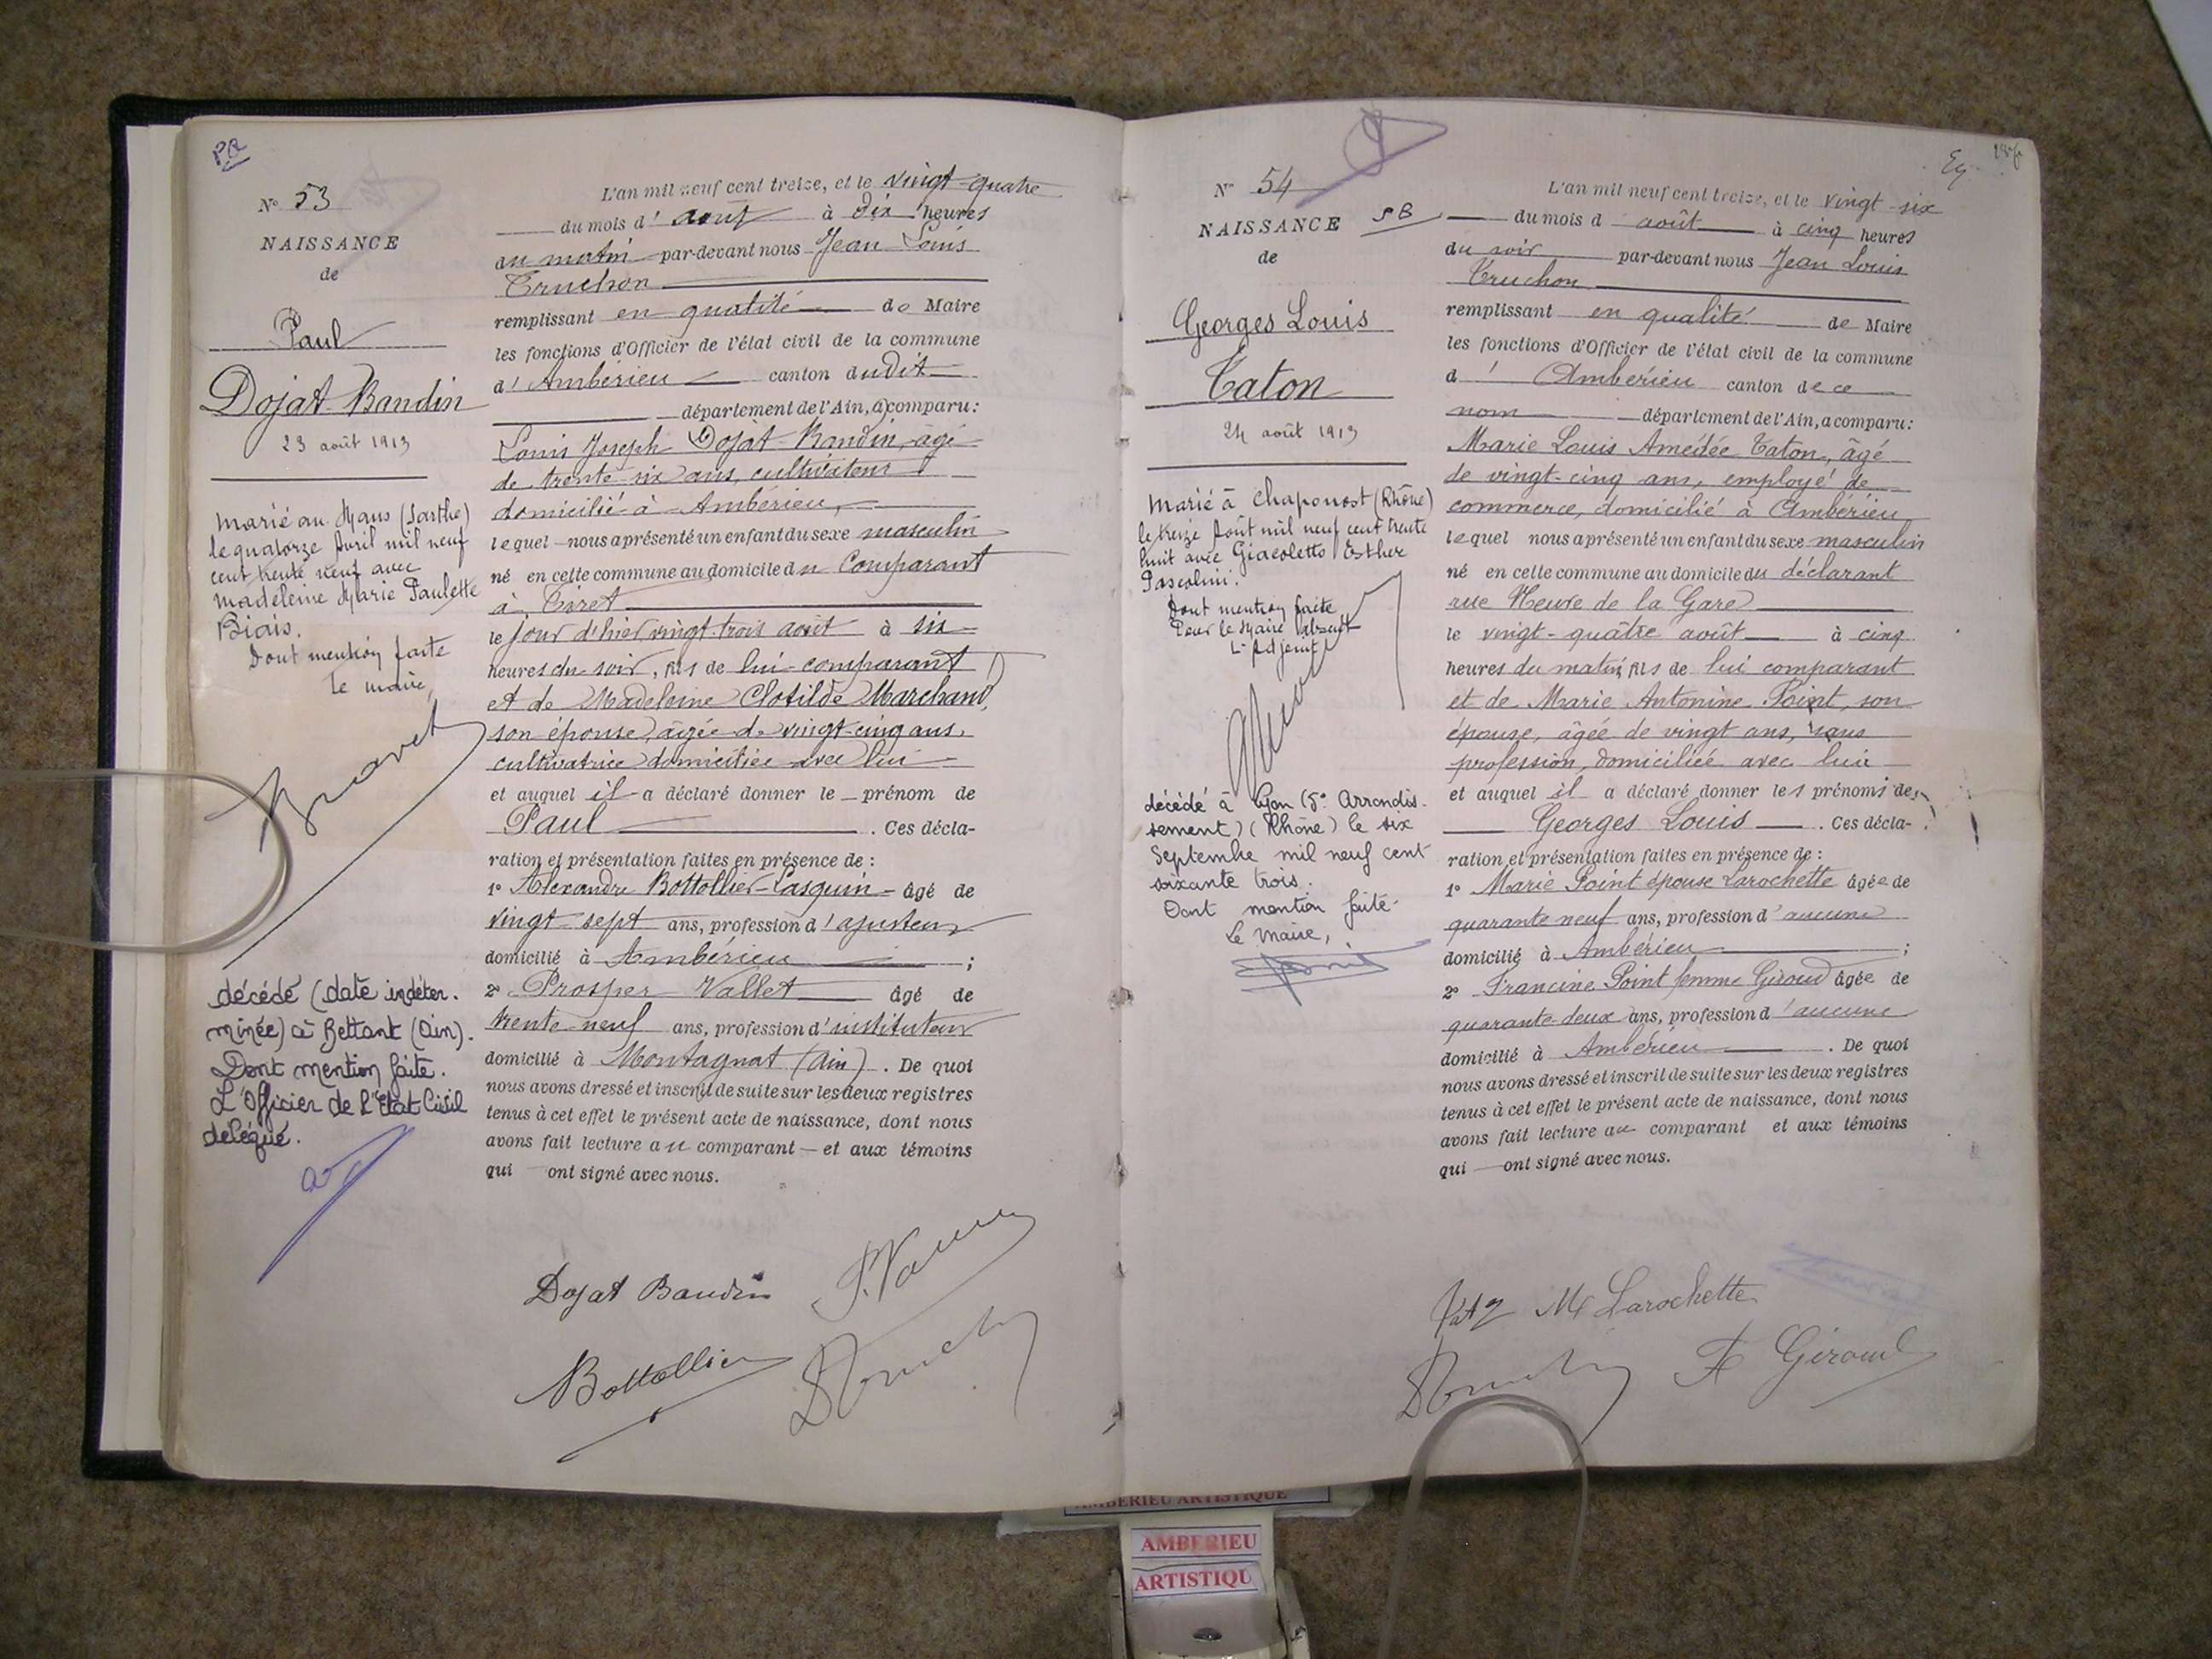 PR
N° 53
NAISSANCE
de
Paul
Dojat-Baudin
23 août 1913
Marié au Mans (Sarthe)
le quatorze Avril mil neuf
cent trente neuf avec
Madeleine Marie Paulette
Biais.
Dont mention faite
Le maire,
décédé (date indéter-
minée) à Bettant (Ain).
Dont mention faite.
L'Officier de l'Etat Civil
délégué.
L'an mil neuf cent treize, et le vingt-quatre
du mois d'août à dix heures
du matin par-devant nous Jean Louis
Truchon
remplissant en qualité de Maire
les fonctions d'Officier de l'état civil de la commune
d'Ambérieu canton dudit
département de l'Ain, a comparu:
Louis Joseph Dojat-Baudin, âgé
de trente-six ans, cultivateur
domicilié à Ambérieu,
lequel nous a présenté un enfant du sexe masculin
né en cette commune au domicile du Comparant
à Tiret
le jour d'hier vingt-trois août à six
heures du soir, fils de lui-comparant
et de Madeleine Clotilde Marchand,
son épouse, âgée de vingt-cinq ans,
cultivatrice domiciliée avec lui
et auquel il a déclaré donner le prénom de
Paul . Ces décla-
ration et présentation faites en présence de :
1° Alexandre Bottollier-Lasquin âgé de
vingt-sept ans, profession d'ajusteur
domicilié à Ambérieu ;
2° Prosper Vallet âgé de
trente-neuf ans, profession d'instituteur
domicilié à Montagnat (Ain) . De quoi
nous avons dressé et inscrit de suite sur les deux registres
tenus à cet effet le présent acte de naissance, dont nous
avons fait lecture au comparant — et aux témoins
qui ont signé avec nous.
Dojat Baudin
Bottollier
N° 54
NAISSANCE
de
Georges Louis
Taton
24 août 1913
Marié à Chaponost (Rhône)
le treize Août mil neuf cent trente
huit avec Giacoletto Esther
Pascoline.
Dont mention faite
Pour le Maire absent
L'Adjoint
décédé à Lyon (5e Arrondis-
sement) (Rhône) le six
Septembre mil neuf cent
soixante trois.
Dont mention faite-
Le Maire,
L'an mil neuf cent treize, et le vingt-six
du mois d août à cinq heures
du soir par-devant nous Jean Louis
Truchon
remplissant en qualité de Maire
les fonctions d'Officier de l'état civil de la commune
d' Ambérieu canton de ce
nom département de l'Ain, a comparu:
Marie Louis Amédée Taton, âgé
de vingt-cinq ans, employé de
commerce, domicilié à Ambérieu
lequel nous a présenté un enfant du sexe masculin
né en cette commune au domicile du déclarant
rue Neuve de la Gare
le vingt-quatre août à cinq
heures du matin, fils de lui comparant
et de Marie Antonine Point, son
épouse, âgée de vingt ans, sans
profession, domiciliée avec lui
et auquel il a déclaré donner les prénoms de
Georges Louis . Ces décla-
ration et présentation faites en présence de :
1° Marie Point épouse Larochette âgée de
quarante neuf ans, profession d'aucune
domicilié à Ambérieu ;
2° Francine Point femme Giroud âgée de
quarante-deux ans, profession d'aucune
domicilié à Ambérieu . De quoi
nous avons dressé et inscrit de suite sur les deux registres
tenus à cet effet le présent acte de naissance, dont nous
avons fait lecture au comparant et aux témoins
qui — ont signé avec nous.
M Larochette
F Giroud
AMBERIEU ARTISTIQUE
AMBERIEU
ARTISTIQU